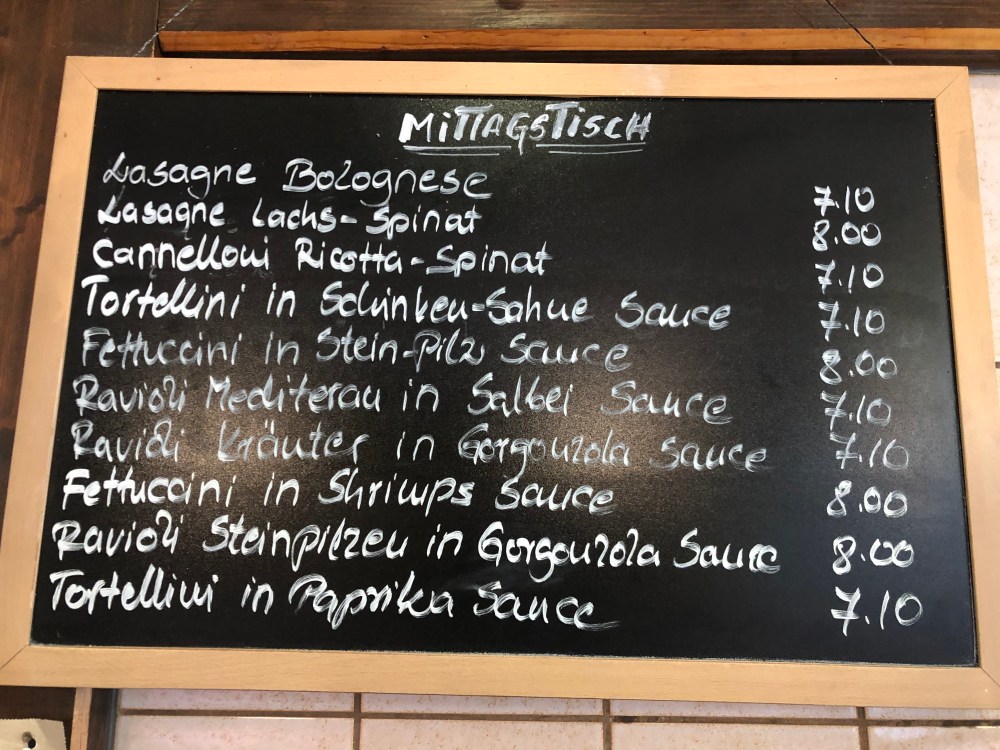 MiTTAGSTiSCH
Lasagne Bolognese 7.10
Lasagne Lachs-Spinat 8.00
Cannelloni Ricotta-Spinat 7.10
Tortellini in Schinken-Sahne Sauce 7.10
Fettuccini in Stein-Pilz Sauce 8.00
Ravioli Mediteran in Salbei Sauce 7.10
Ravioli Kräuter in Gorgonzola Sauce 7.10
Fettuccini in Shrimps Sauce 8.00
Ravioli Steinpilzen in Gorgonzola Sauce 8.00
Tortellini in Paprika Sauce 7.10